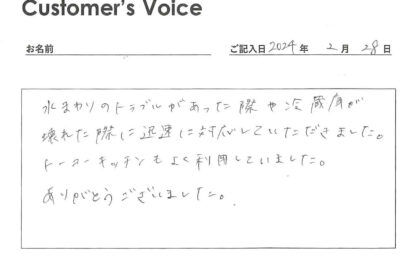 Customer's Voice
お名前 ご記入日 2024 年 2 月 28 日
水まわりのトラブルがあった際や冷蔵庫が
壊れた際に迅速に対応していただきました。
トーコーキッチンもよく利用していました。
ありがとうございました。